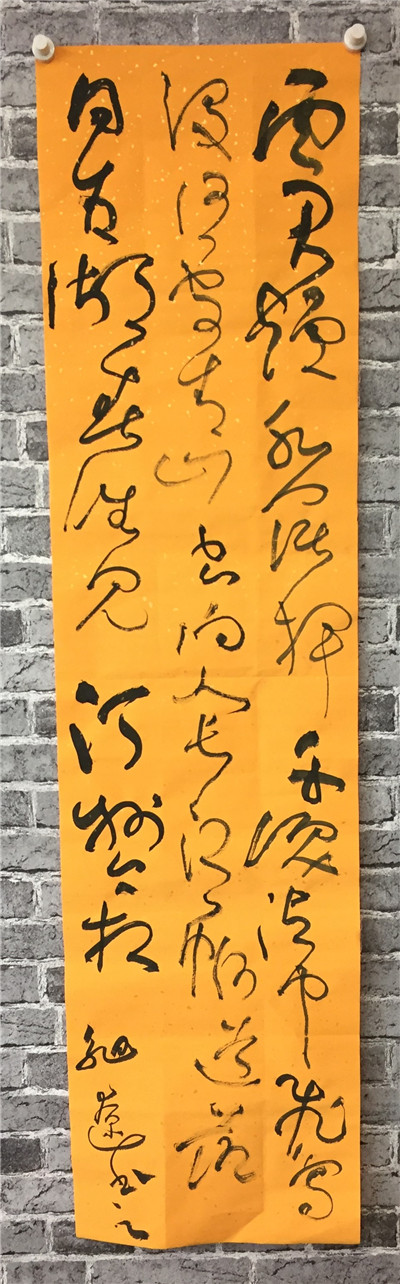 望君烟水阔挥手泪沾巾飞鸟
没何处青山空向人长江一帆远落
日五湖春谁见汀洲上相
书之